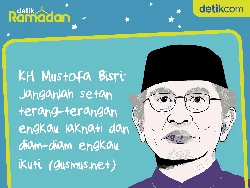 detik
Ramadan
detikcom
KH Mustofa Bisri:
Janganlah setan
terang-terangan
engkau laknati dan
diam-diam engkau
ikuti (gusmus.net)